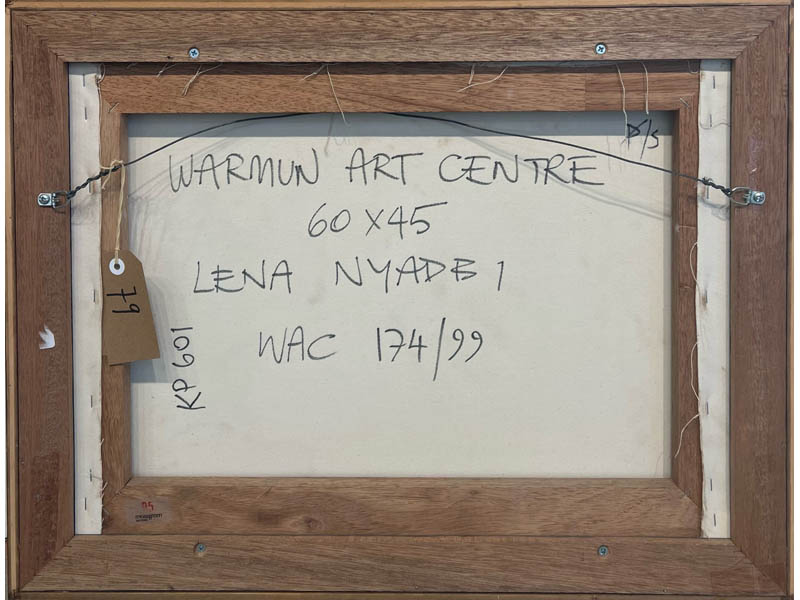 D/S
WARMUN ART CENTRE
60 X 45
LENA NYADB1
WAC 174/99
KP601
79
75